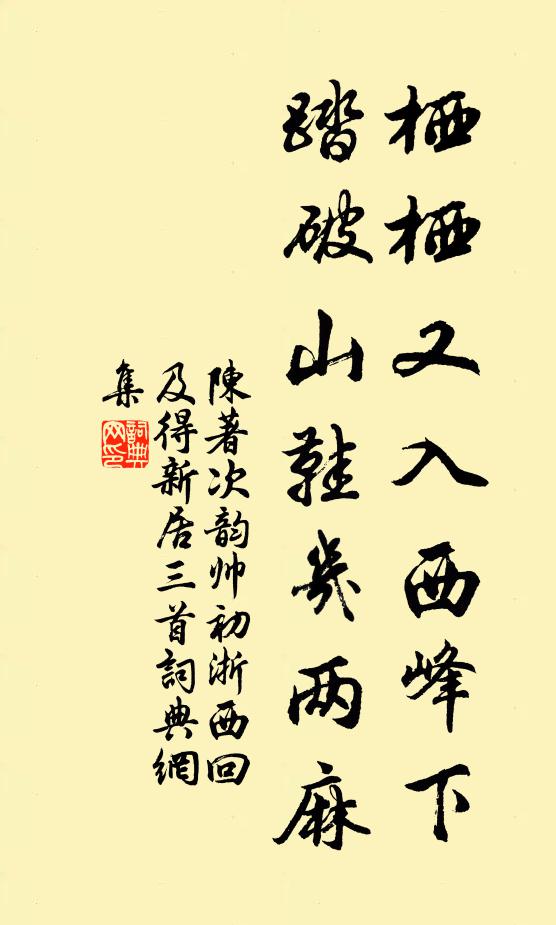 栖栖又入西峰下
踏破山鞋几两麻
陳著次韵帅初浙西回
及得新居三首詞典網
集
詞典
网印